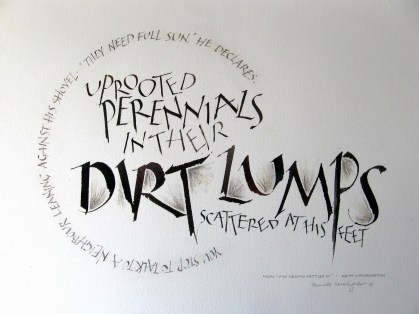 YOU STOP TO TALK TO A NEIGHBOUR LEANING AGAINST HIS SHOVEL. "THEY NEED FULL SUN," HE DECLARES.
UPROOTED
PERENNIALS
IN THEIR
DIRT LUMPS
SCATTERED AT HIS FEET
FROM